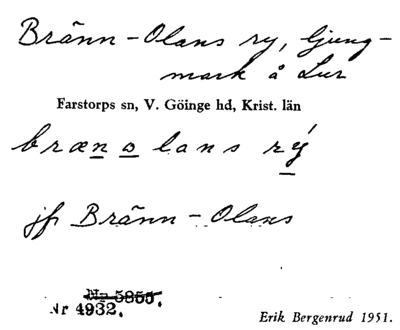 Bränn-Olans ry, ljung-
mark å Lur
Farstorps sn, V. Göinge hd, Krist. län
bræn olans rý
jfr Bränn-Olans
Nr 5855.
Nr 4932.
Erik Bergenrud 1951.